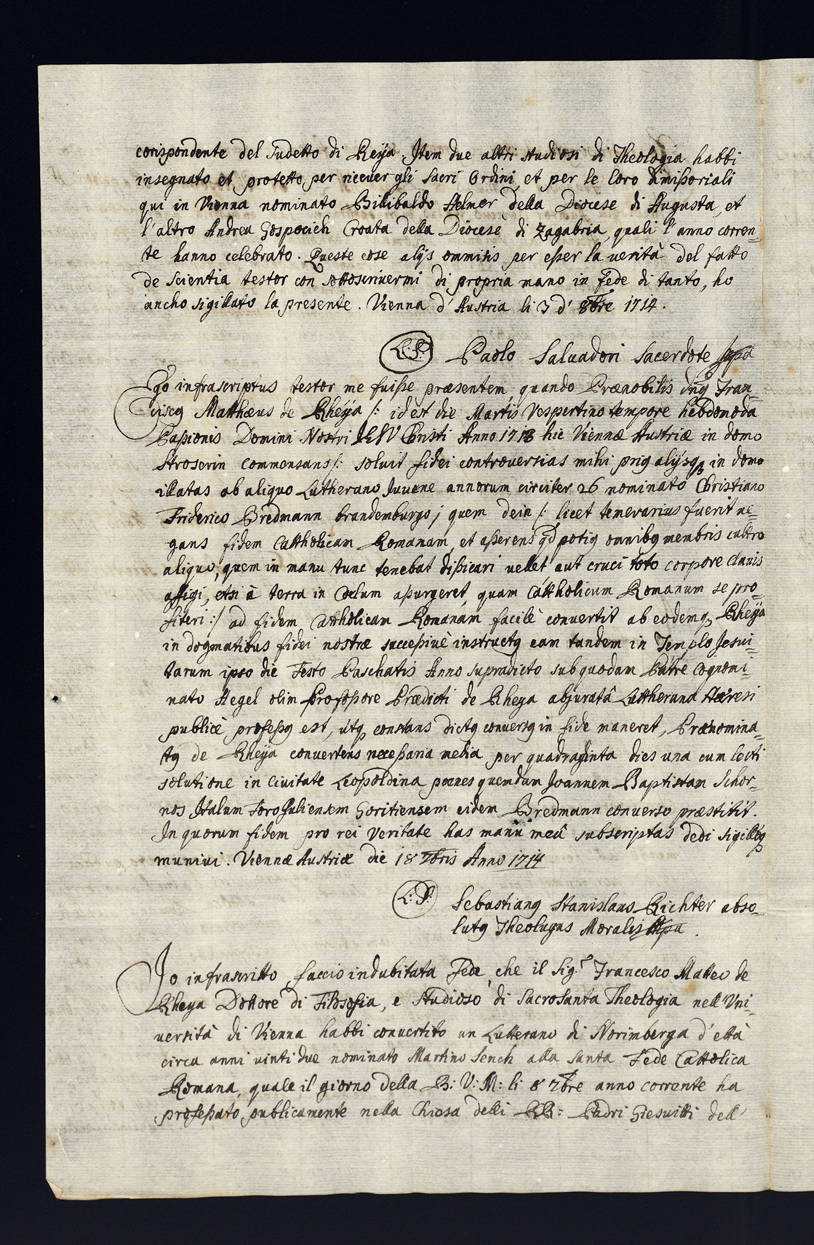 corispondente del sudetto di Rheÿa. Item due altri studiosi di Theologia habbi
insegnato et protetto per ricever gli sacri Ordini et per le loro dimissoriali
qui in Vienna nominato Bilibaldo Helmer della Diocese di Augusta, et
l'altro Andrea Gospocich Croata della Diocese di Zagabria, quali l'anno corren=
te hanno celebrato. Queste cose alijs ommitis per esser la verità del fatto
de Scientia testor con sottoscrivermi di propria mano in fede di tanto, ho
ancho sigillato la presente. Vienna d'Austria li 3 d' 8bre 1714.
L.S. Paolo Salvadori Sacerdote
Ego infrascriptus testor me fuisse præsentem quando Prænobilis Dnꝰ Fran=
ciscꝰ Matthæus de Rheÿa /: id est die Martis Vespertino tempore hebdomoda
Passionis Domini Nostri JESV Christi Anno 1713 hic Viennæ Austriæ in domo
Stroserin commensans /: soluit fidei controversias mihi priꝰ alijsqꝫ in domo
illatas ab aliquo Lutherano Iuvene annorum circiter 26 nominato Christiano
Friderico Bredmann brandemburgo; quem dein /: licet temerarius fuerit ne=
gans fidem Catthólicam Romanam, et asserens qd potiꝰ omnibꝰ membris cultro
aliquo, quem in manu tunc tenebat dissicari vellet aut cruci toto corpore clavis
affigi, etsi à terra in Cœlum assurgeret quam Cattholicum Romanum se pro=
fiteri :/ ad fidem Cattholicam Romanam facilè convertit ab eodemqꝫ Rheÿa
in dogmatibus fidei nostræ successivè instructꝰ eam tandem in Templo Jesui=
tarum ipso die Festo Paschatis Anno supradicto sub quodam Patre cognomi=
nato Hegel olim Professore Prædicti de Rheya abjuratâ Luttherana Hæresi
publicè professꝰ est, utqꝫ constans dictꝰ conversꝰ in fide maneret, Prænomina=
tꝰ de Rheÿa convertens necessaria media per quadraginta dies una cum locti
solutione in Civitate Leopoldina penes quendam Joannem Baptistam Schor=
nos Italum Forojuliensem Goritiensem eidem Bredmann converso præstitit.
In quorum fidem pro rei Veritate has manu meâ subscriptas dedi sigilloqꝫ
munivi. Viennæ Austriæ die 18 7bris Anno 1714
L.S. Sebastianꝰ Stanislaus Richter abso=
lutꝰ Theologus Moralis
Io infrascritto faccio indubitata Fede che il Sig.r Francesco Matteo de
Rheya Dottore di Filosofia, e Studioso di Sacrosanta Theologia nell'Vni=
versità di Vienna habbi convertito un Lutterano di Norimberga d'ettà
circa anni vinti due nominato Martino Senck alla santa Fede Cattolica
Romana, quale il giorno della B: V: M: li 8 7bre anno corrente ha
professato publicamente nella Chiesa delli RR: Padri Giesuitti dell'